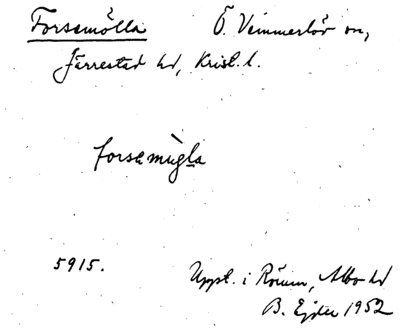 Forsemölla Ö. Vemmerlöv sn,
Järrestad hd, Krist. l.
forsamìgla
5915.
Uppt. i Rörum, Albo hd
B. Ejder 1952